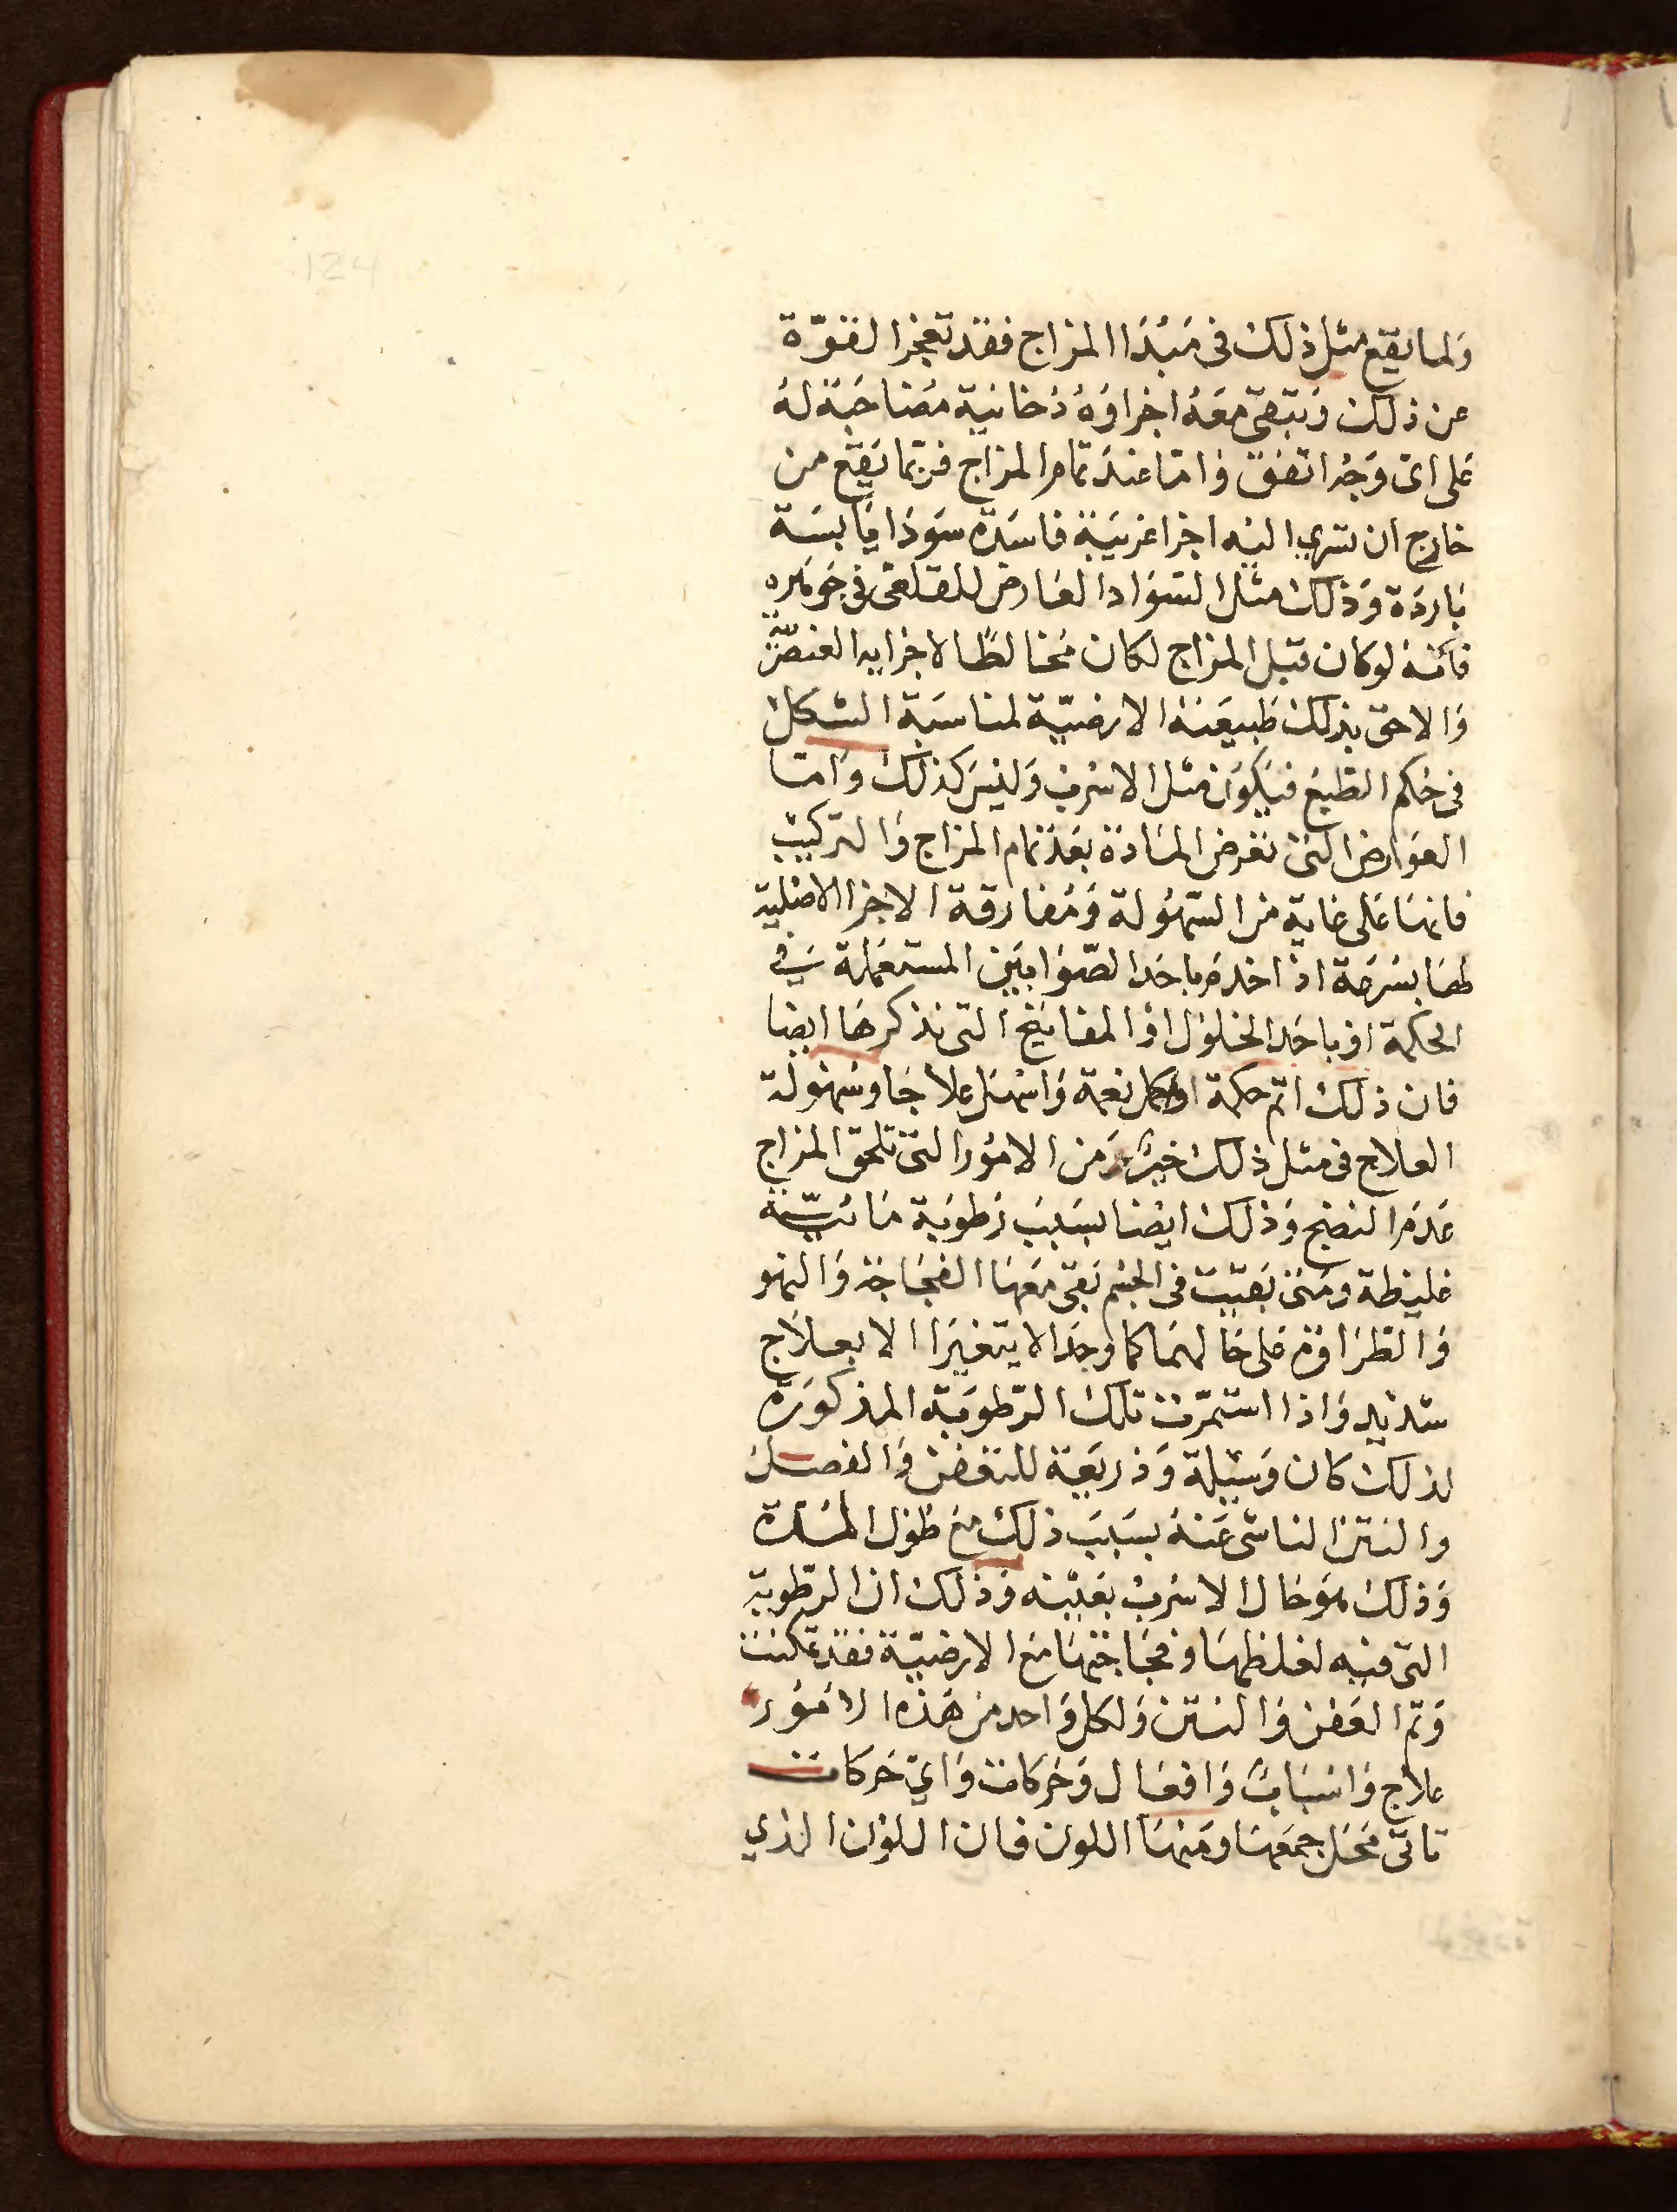 124
ولما يقع مثل ذلك في مبدا المزاج فقد تعجز القوّة
عن ذلك وتبقى معه اجزاوه دخانية مصاحبة له
على اى وجه اتفق واما عند تمام المزاج فربما يقع من
خارج ان تسري اليه اجزا غريبة فاسدة سودا يابسة
باردة وذلك مثل السواد العارض للقلعى في جوهره
فانه لو كان قبل المزاج لكان مخالطا لاجزايه العنصريّة
والاحق بذلك طبيعته الارضيّة لمناسبة الشكل
فى حكم الطبع فيكون مثل الاسرب وليس كذلك واما
العوارض التى تعرض المادة بعد تمام المزاج والتركيب
فانها على غاية من السهولة ومفارقة الاجزا الاصلية
لها بسرعة اذا خدم باحد الصوابين المستعملة في
الحكمة او باحد الخلول او المفاتيح التى نذكرها ايضا
فان ذلك اتم حكمة واكمل نعمة واسهل علاجا وسهولة
العلاج فى مثل ذلك خير من الامور التى تلحق المزاج
عدم النضج وذلك ايضا بسبب رطوبة مائيّة
غليظة ومتى بقيت فى الجسم بقى معها الفجاجة والنهو
والطراوة على حالهما كما وجدا لا يتغيرا الا بعلاج
شديد واذا استمرت تلك الرّطوبة المذكورة
لذلك كان وسيلة وذريعة للتعفن والفصل
والنتن الناشى عنه بسبب ذلك مع طول المدة
وذلك هو حال الاسرب بعينه وذلك ان الرطوبة
التى فيه لغلظها وفجاجتها مع الارضيّة فقد تمكنت
وتم العفن والنتن ولكل واحد من هذه الامور
علاج واسباب وافعال وحركات واي حركات
تاتى محل جمعها ومنها اللون فان اللون الذي